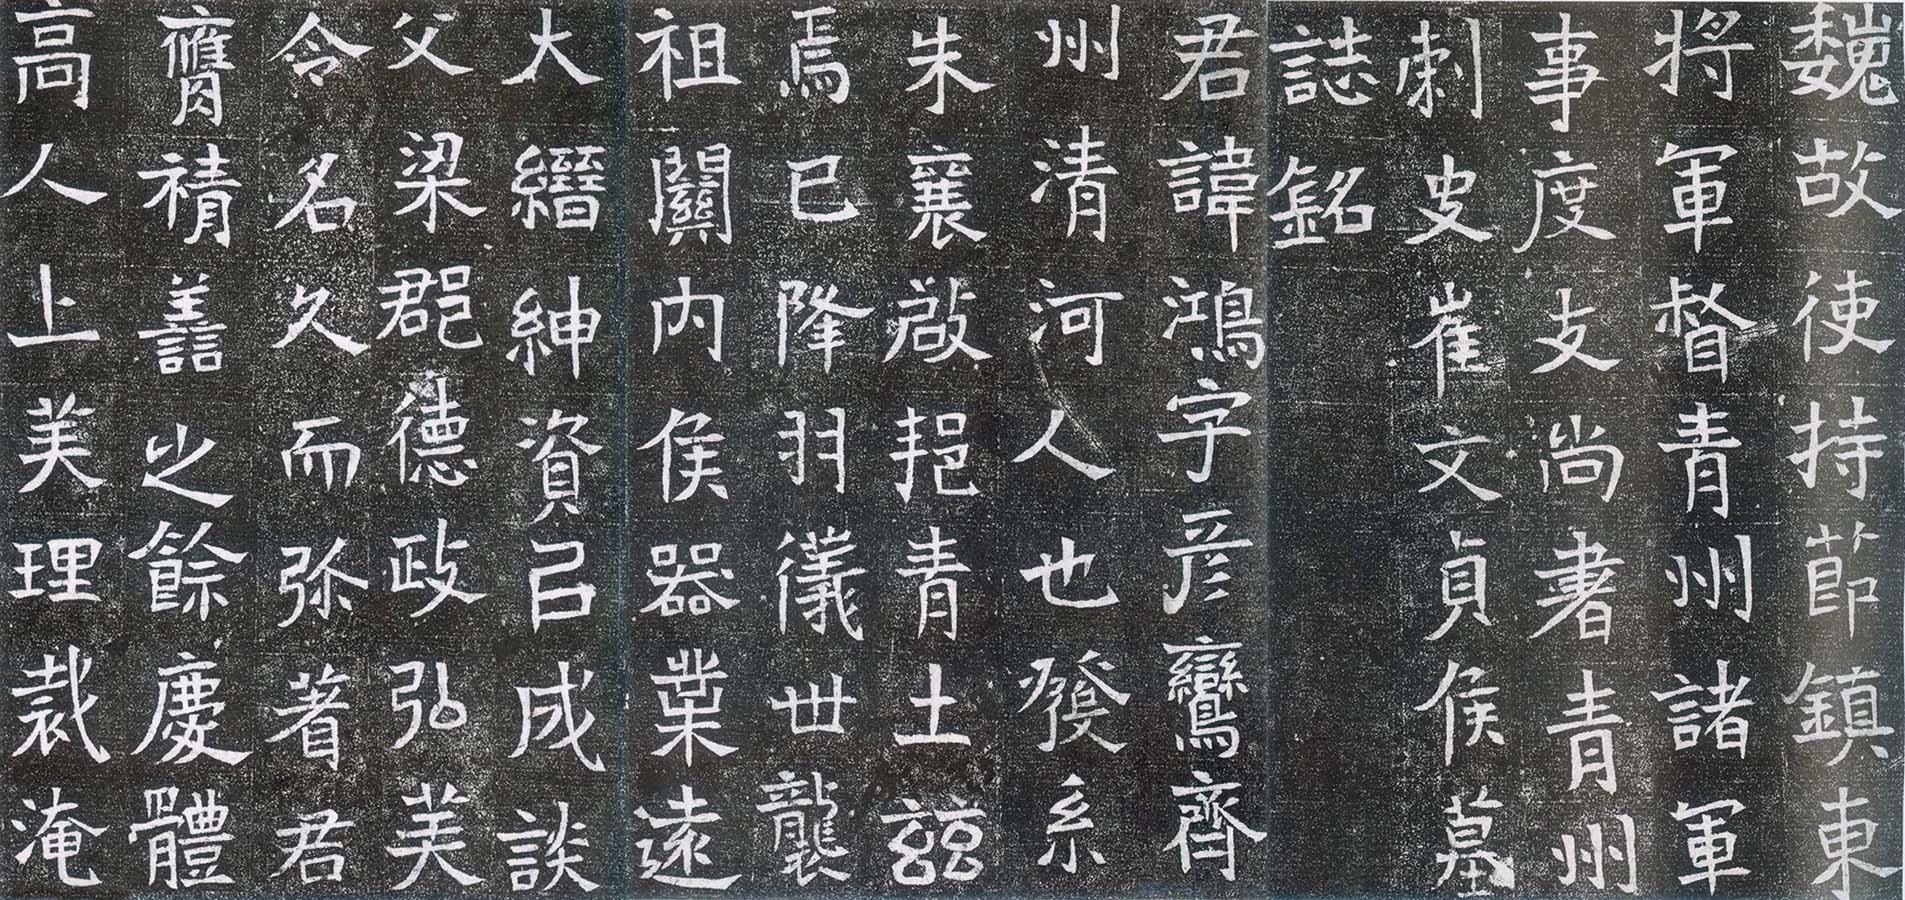 魏故使持節鎮東
将軍督青州諸軍
事度支尚書青州
刺史崔文貞侯墓
誌銘
君諱鴻字彦鸞齊
州清河人也發系
朱襄啟邑青土茲
焉已隆羽儀世襲
祖關内侯器業遠
大縉紳資以成談
父梁郡德政弘美
令名久而弥著君
膺積善之餘慶體
高人上美理裁淹